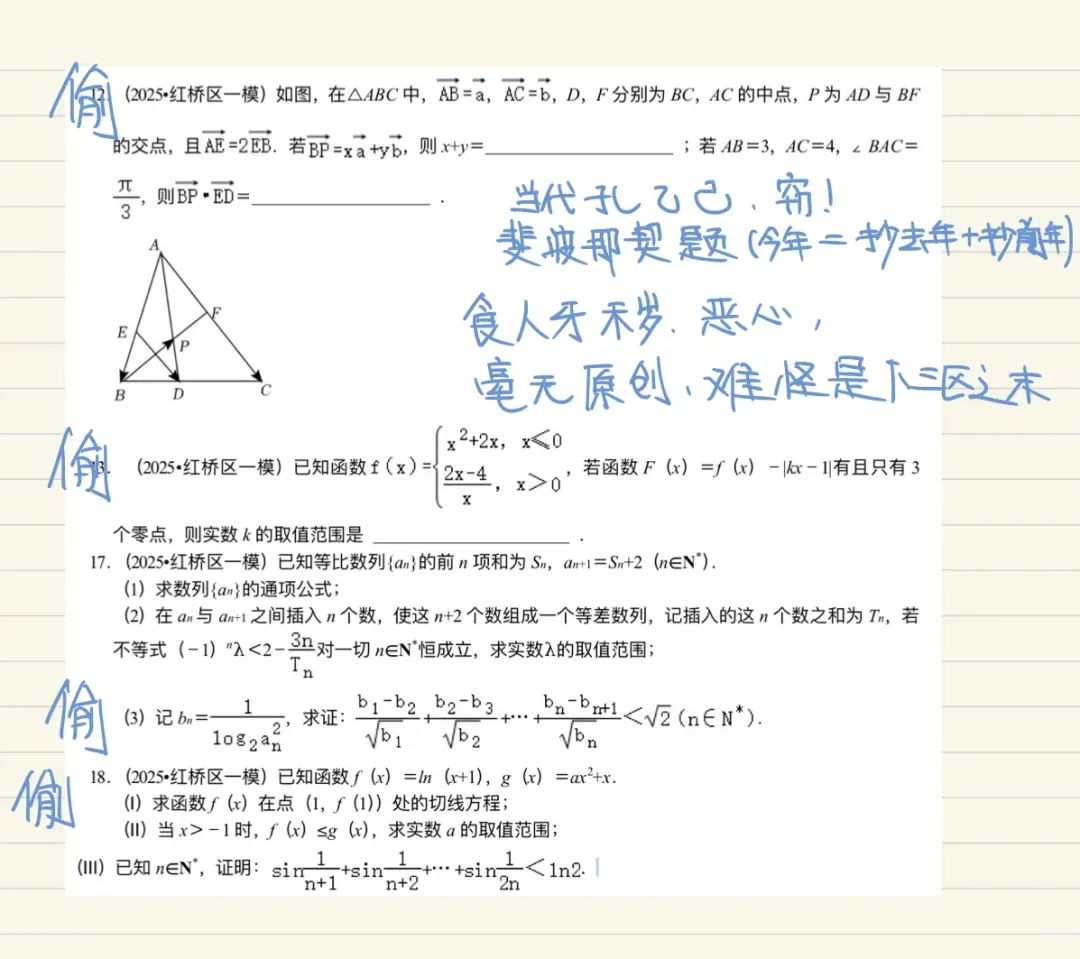 偷
12. (2025•红桥区一模) 如图，在△ABC 中，AB=a，AC=b，D，F 分别为 BC，AC 的中点，P 为 AD 与 BF
的交点，且AE=2EB．若BP=xa+yb，则 x+y=________ ；若 AB=3，AC=4，∠BAC=
π/3，则BP•ED=________ ．
当代孔乙己．窃！
斐波那契题(今年=抄去年+抄前年)
A
F
E
P
B
D
C
食人牙秽．恶心，
毫无原创，难怪是下三区之末
偷
13. (2025•红桥区一模) 已知函数 f(x)={x²+2x，x≤0
(2x-4)/x，x>0，若函数 F（x）=f（x）-|kx-1|有且只有 3
个零点，则实数 k 的取值范围是 ________ ．
17. (2025•红桥区一模) 已知等比数列{aₙ}的前 n 项和为 Sₙ，aₙ₊₁=Sₙ+2（n∈N*）.
（1）求数列{aₙ}的通项公式；
（2）在 aₙ 与 aₙ₊₁ 之间插入 n 个数，使这 n+2 个数组成一个等差数列，记插入的这 n 个数之和为 Tₙ，若
不等式（-1）ⁿλ<2-3n/Tₙ对一切 n∈N*恒成立，求实数λ的取值范围；
偷
（3）记 bₙ=1/log₂aₙ²，求证：(b₁-b₂)/√b₁+(b₂-b₃)/√b₂+…+(bₙ-bₙ₊₁)/√bₙ<√2(n∈N*).
偷
18. (2025•红桥区一模) 已知函数 f（x）=ln（x+1），g（x）=ax²+x.
（Ⅰ）求函数 f（x）在点（1，f（1））处的切线方程；
（Ⅱ）当 x>-1 时，f（x）≤g（x），求实数 a 的取值范围；
（Ⅲ）已知 n∈N*，证明：sin1/(n+1)+sin1/(n+2)+…+sin1/2n<ln2.